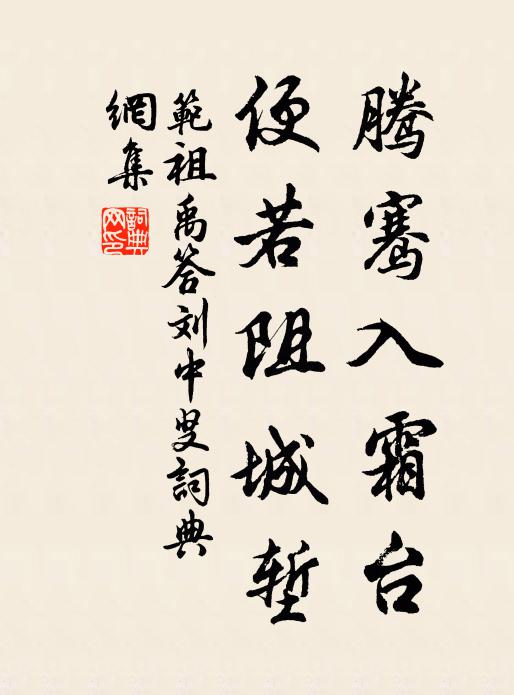 腾骞入霜台
便若阻城堑
範祖禹答刘中叟詞典
網集
詞典网印